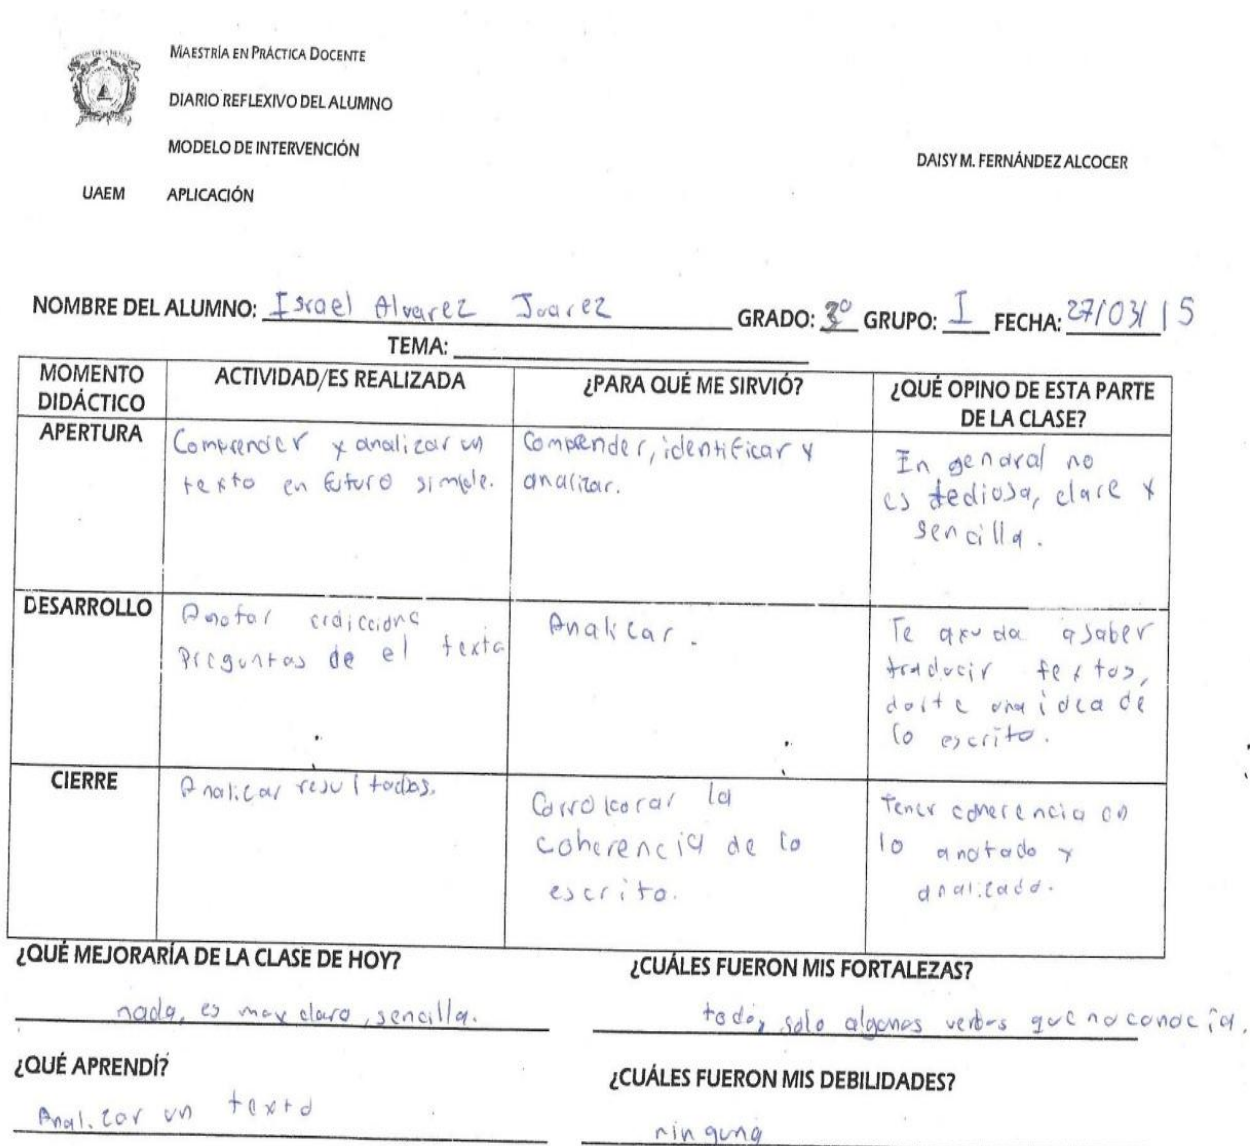 MAESTRÍA EN PRÁCTICA DOCENTE
DIARIO REFLEXIVO DEL ALUMNO
MODELO DE INTERVENCIÓN
DAISY M. FERNÁNDEZ ALCOCER
UAEM APLICACIÓN
NOMBRE DEL ALUMNO: Israel Alvarez Juarez GRADO: 3° GRUPO: I FECHA: 27/03/15
TEMA:
MOMENTO
DIDÁCTICO
ACTIVIDAD/ES REALIZADA
¿PARA QUÉ ME SIRVIÓ?
¿QUÉ OPINO DE ESTA PARTE
DE LA CLASE?
APERTURA
Comprender y analizar un
texto en futuro simple.
Comprender, identificar y
analizar.
En general no
es tediosa, clare y
sencilla.
DESARROLLO
Anotar
Preguntas de el texto
Analizar.
Te ayuda a saber
traducir textos,
darte una idea de
lo escrito.
CIERRE
Analizar resultados.
Corroborar la
coherencia de lo
escrito.
Tener coherencia en
lo anotado y
analizado.
¿QUÉ MEJORARÍA DE LA CLASE DE HOY?
nada, es muy claro, sencilla.
¿CUÁLES FUERON MIS FORTALEZAS?
todo, solo algunos verbos que no conocía.
¿QUÉ APRENDÍ?
Analizar un texto
¿CUÁLES FUERON MIS DEBILIDADES?
ninguna